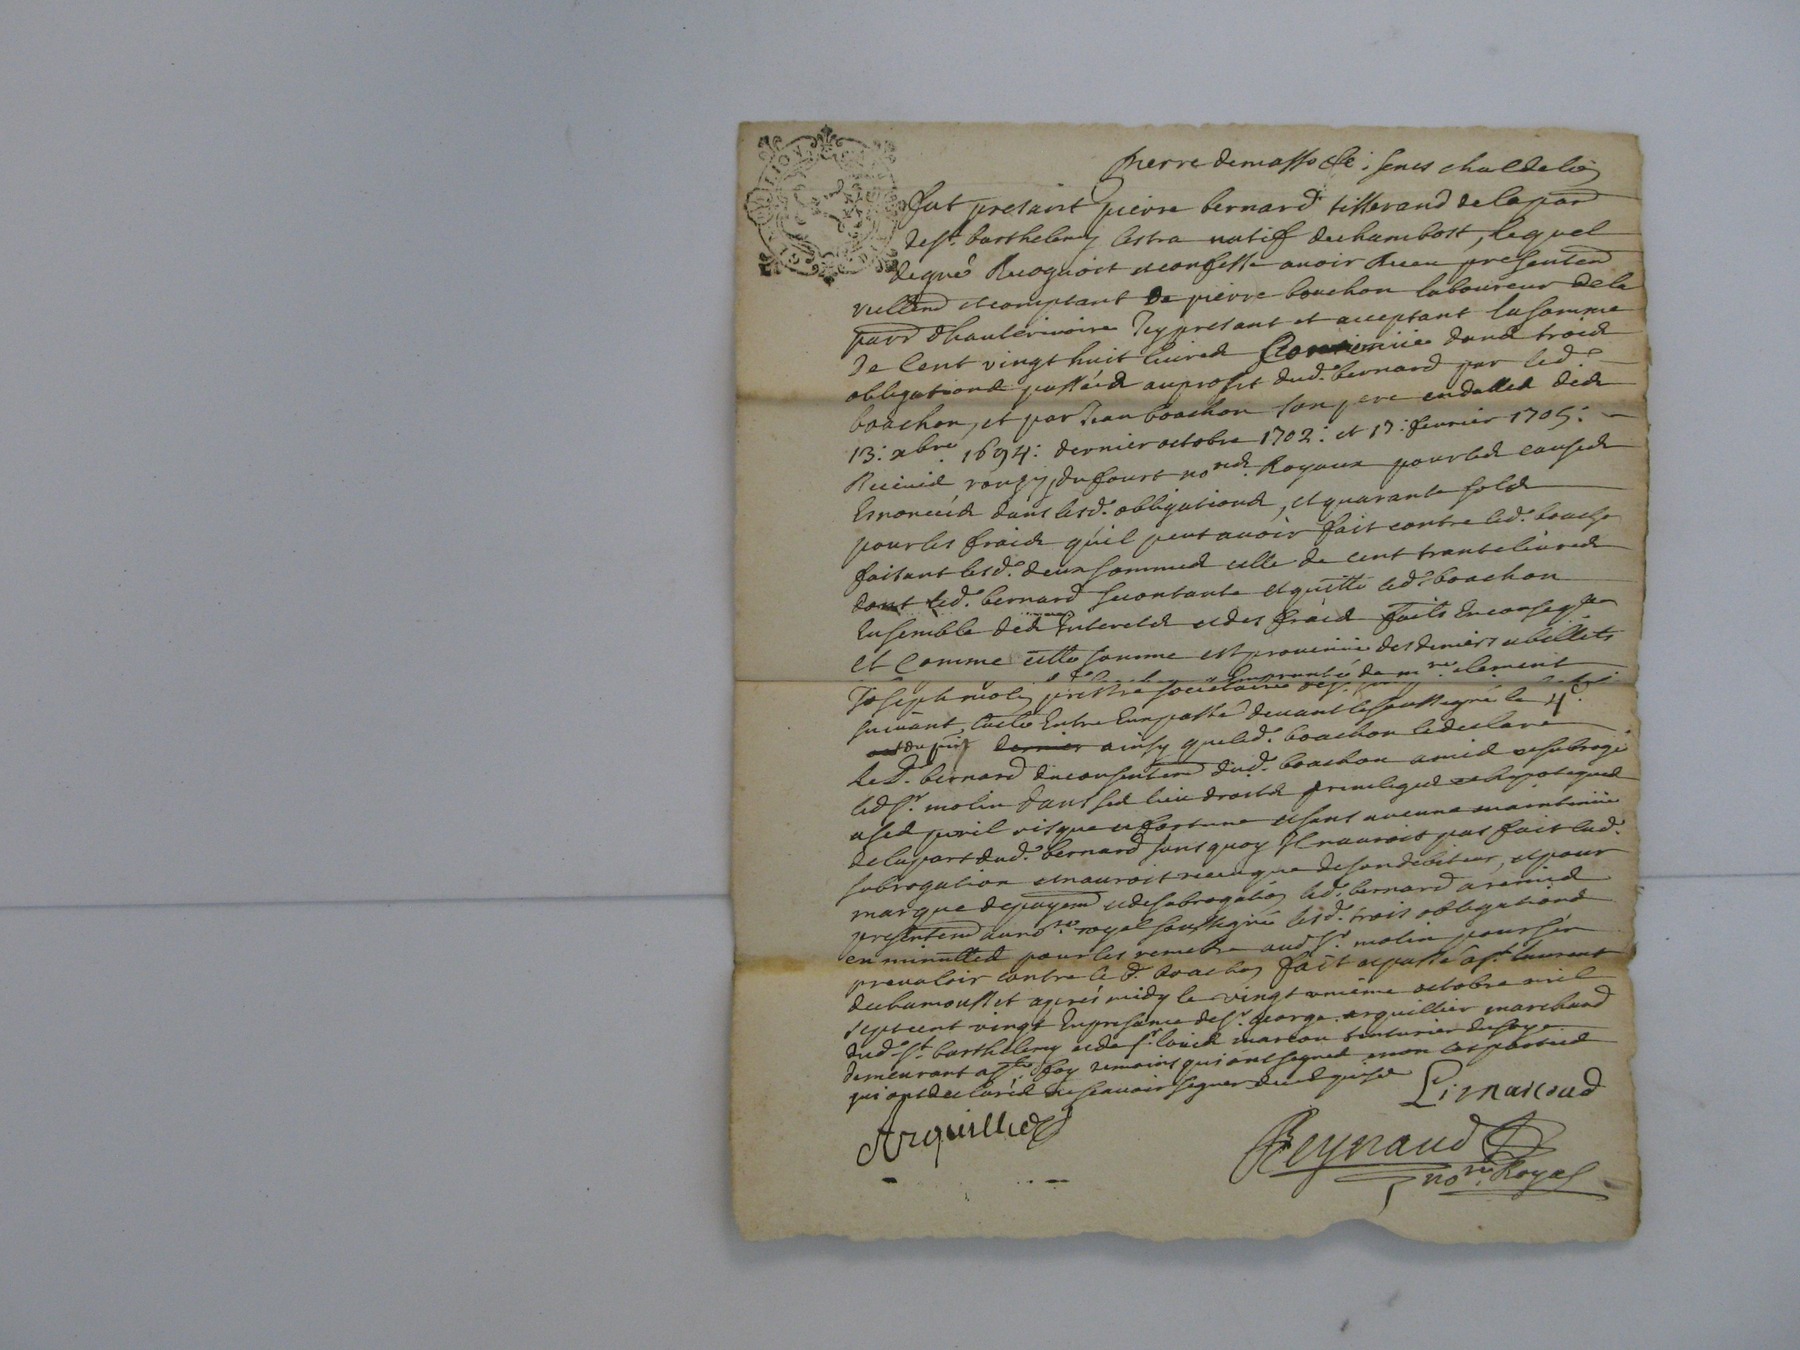 pierre demasso &c. senes chal de lion
fut presant pierre bernard tisserand de la parr
de st. barthelemy lestra natif de chambost, lequel
de gré Recognoit et confesse avoir Receu presentem
rellem et comptant de pierre bouchon laboureur de la
parr d'hauterivoire Icy presant et acceptant la somme
de cent vingt huit livres Contenüe dans trois
obligations passées au profit dud. bernard par led.
bouchon, et par Jean bouchon son pere en dattes des
13: xbre 1694: dernier octobre 1702: et 17: fevrier 1705:
Receües et dufourt nores Royaux pour les causes
Enoncées dans lesd. obligations, et quarante sols
pour les frais qu'il peut avoir fait contre led. boucho
faisant lesd. deux sommes celle de cent trante livres
dont led. bernard se contante et quitte led. bouchon
Ensemble des Interets et des frais faits En conseqce
et comme cette somme est provenüe des deniers
Joseph molin prestre societaire de st. de mre clement
suivant l'acte Entre Eux passé devant le soussigné le 4e.
du pnt dernier ainsy que led. bouchon le declare
le d. bernard du consentem dud. bouchon a mis et subrogé
led sr. molin dans ses lieu droits privileges et hypoteques
a ses peril risque et fortune et sans aucune maintenüe
de la part dud. bernard sans quoy Il n'auroit pas fait lad.
subrogation et n'auroit receu que de son debiteur, et pour
marque de payem et de subrogation led. bernard a remis
presentem au nore royal soussigné lesd. trois obligations
en minuttes pour les remetre aud sr. molin pour s'en
prevaloir contre le d. bouchon fait et passé a st. laurent
de chamousset apres midy le vingt unieme octobre mil
sept cent vingt En presance de sr. george arquillier marchand
dud. st. barthelemy et de sr. louis marcou tinturier de soye
demeurant a ste. foy temoins qui ont signés et non les parties
qui ont declarés ne scavoir signer de ce enquises
L. Marcoud
Arquillier
Reynaud
nore. Royal